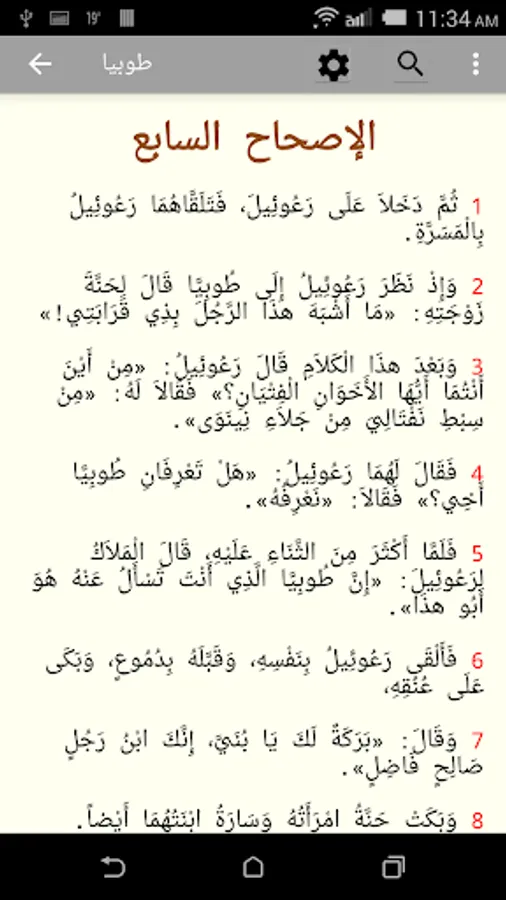 19° 11:34 AM
طوبيا
الإصحاح السابع
1 ثُمَّ دَخَلاَ عَلَى رَعُوئِيلَ، فَتَلَقَّاهُمَا رَعُوئِيلُ
بِالْمَسَرَّةِ.
2 وَإِذْ نَظَرَ رَعُوئِيلُ إِلَى طُوبِيَّا قَالَ لِحَنَّةَ
زَوْجَتِهِ: «مَا أَشْبَهَ هذَا الرَّجُلَ بِذِي قَرَابَتِي!»
3 وَبَعْدَ هذَا الْكَلاَمِ قَالَ رَعُوئِيلُ: «مِنْ أَيْنَ
أَنْتُمَا أَيُّهَا الأَخَوَانِ الْفِتْيَانِ؟» فَقَالاَ لَهُ: «مِنْ
سِبْطِ نَفْتَالِيَ مِنْ جَلاَءِ نِينَوَى».
4 فَقَالَ لَهُمَا رَعُوئِيلُ: «هَلْ تَعْرِفَانِ طُوبِيَّا
أَخِي؟» فَقَالاَ: «نَعْرِفُهُ».
5 فَلَمَّا أَكْثَرَ مِنَ الثَّنَاءِ عَلَيْهِ، قَالَ الْمَلاَكُ
لِرَعُوئِيلَ: «إِنَّ طُوبِيَّا الَّذِي أَنْتَ تَسْأَلُ عَنْهُ هُوَ
أَبُو هذَا».
6 فَأَلْقَى رَعُوئِيلُ بِنَفْسِهِ، وَقَبَّلَهُ بِدُمُوعٍ، وَبَكَى
عَلَى عُنُقِهِ،
7 وَقَالَ: «بَرَكَةٌ لَكَ يَا بُنَيَّ، إِنَّكَ ابْنُ رَجُلٍ
صَالِحٍ فَاضِلٍ».
8 وَبَكَتْ حَنَّةُ امْرَأَتُهُ وَسَارَةُ ابْنَتُهُمَا أَيْضاً.